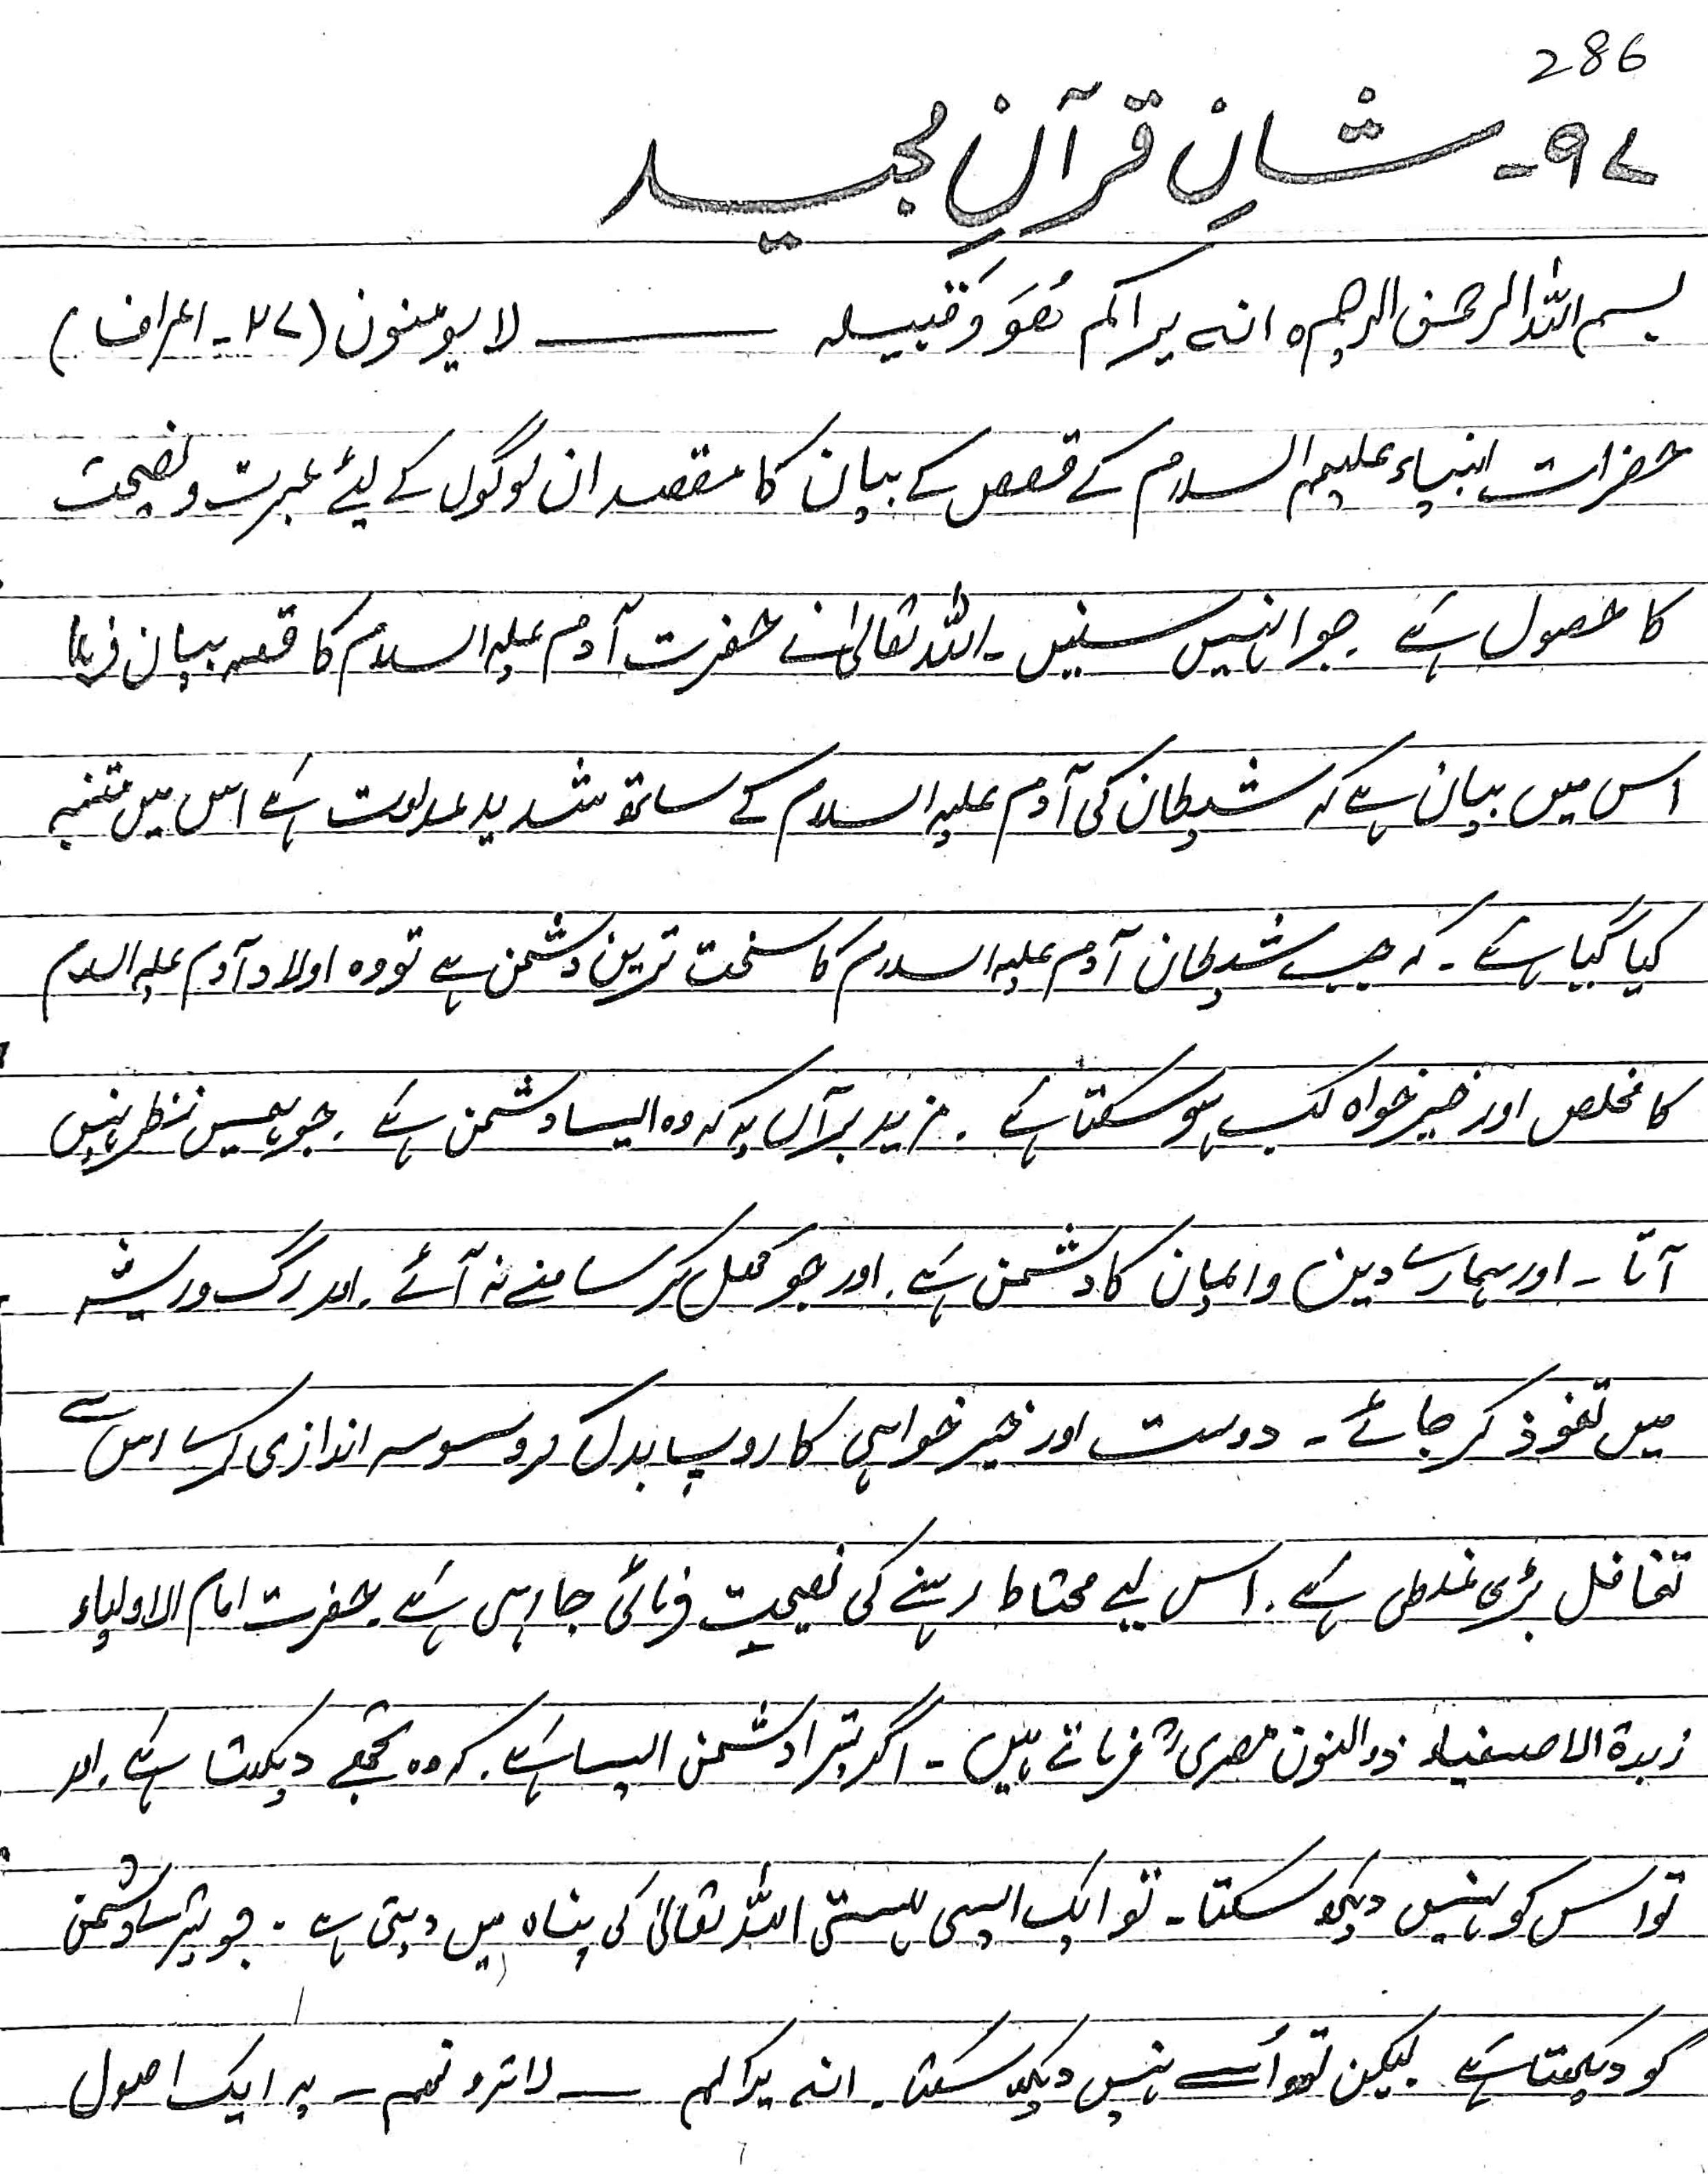 286
۹۷۔ شانِ قرآنِ مجید
بسم اللہ الرحمٰن الرحیم ہ انہ یراکم ھُوَ وَقبیلہ ——— لا یومنون (۲۷۔ اعراف)
حضرات انبیاء علیہم السلام کے قصص کے بیان کا مقصد ان لوگوں کے لیئے عبرت و نصیحت
کا حصول ہے۔ جو انہیں سنیں۔ اللہ تعالیٰ نے حضرت آدم علیہ السلام کا قصہ بیان فرمایا
اس میں بیان ہے کہ شیطان کی آدم علیہ السلام کے ساتھ شدید عداوت ہے اس میں متنبہ
کیا گیا ہے۔ کہ جب شیطان آدم علیہ السلام کا سخت ترین دشمن ہے تو وہ اولاد آدم علیہ السلام
کا مخلص اور خیر خواہ کب ہو سکتا ہے۔ مزید برآں یہ کہ وہ ایسا دشمن ہے۔ جو ہمیں نظر نہیں
آتا۔ اور ہمارے دین و ایمان کا دشمن ہے۔ اور جو کھل کر سامنے نہ آئے۔ اور رگ و ریشہ
میں نفوذ کر جائے۔ دوست اور خیر خواہی کا روپ بدل کر وسوسہ اندازی کرے اس سے
تغافل بڑی غلطی ہے۔ اس لیے محتاط رہنے کی نصیحت فرمائی جا رہی ہے۔ حضرت امام الاولیاء
زبدۃ الاصفیاء ذوالنون مصریؒ فرماتے ہیں۔ اگر تیرا دشمن ایسا ہے۔ کہ وہ تجھے دیکھتا ہے۔ اور
تو اس کو نہیں دیکھ سکتا۔ تو ایک ایسی ہستی اللہ تعالیٰ کی پناہ میں دیتی ہے۔ جو تیرے دشمن
کو دیکھتا ہے۔ لیکن تو اُسے نہیں دیکھ سکتا۔ انہ یراکم —— لا ترونھم — یہ ایک اصول